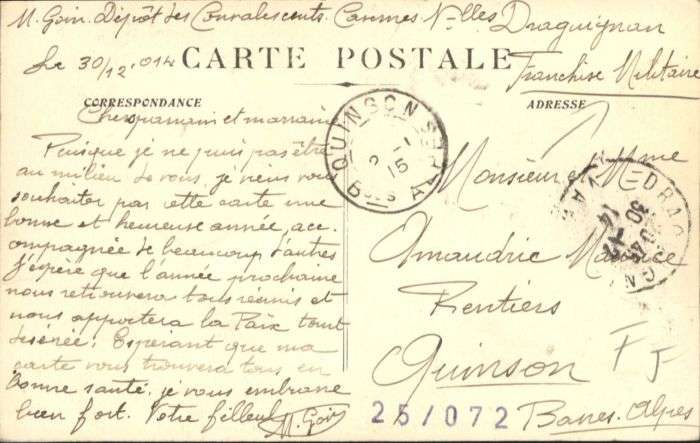 M. Goin. Dépôt des Convalescents. Casernes N-lles Draguignan
Le 30/12. 014
CARTE POSTALE
Franchise Militaire
CORRESPONDANCE
ADRESSE
Chers parrain et marraine
Puisque je ne puis pas être
au milieu de vous, je viens vous
souhaiter par cette carte une
bonne et heureuse année, acc.
ompagnée de beaucoup d'autres
J'espère que l'année prochaine
nous retrouvera tous réunis et
nous apportera la Paix tant
désirée. Espérant que ma
carte vous trouvera tous en
bonne santé. je vous embrasse
bien fort. Votre filleul M. Goin
QUINSON
2 - 1
15
Bses ALPES
Monsieur et Mme
Amaudric Maurice
Rentiers
Quinson
Basses. Alpes
DRAGUIGNAN
30 - 12
14
VAR
FJ
25/072